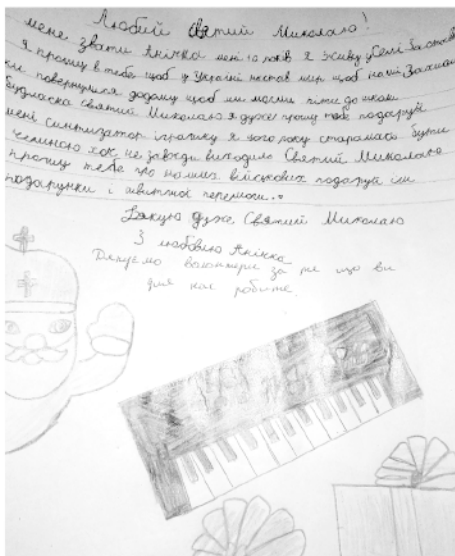 Любий святий Миколаю!
мене звати Анічка мені 10 років я живу у селі
я прошу в тебе щоб у Україні настав мир щоб наші
повернулися додому щоб ми могли піти до школи
будласка святий Миколаю я дуже прошу тебе подаруй
мені синтизатор іграшку я цього року старалась бути
чемною хох не завжди виходило Святий Миколаю
прошу тебе про наших військових подаруй їм
подарунки і швидкої перемоги..
Дякую дуже Святий Миколаю
З любовію Анічка
Дякуємо волонтери за те що ви
для нас робите.